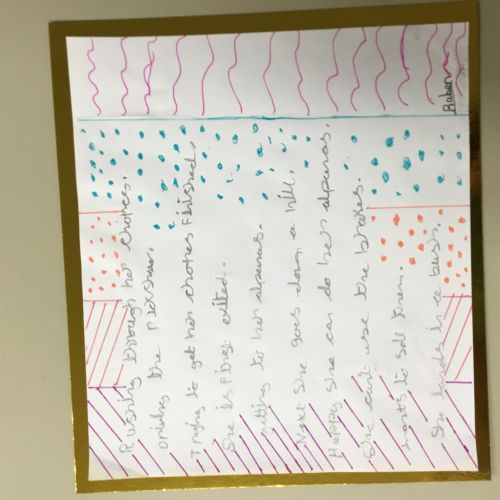 Rushing through her chores.
oriving the rickshaw.
Trying to get her chores finished.
She is first exited.
getting to her alpacas.
Next she goes down a hill.
Happy she can do her alpacas.
She can't use the brakes.
wants to sell them.
She lands in a bush.
Raben